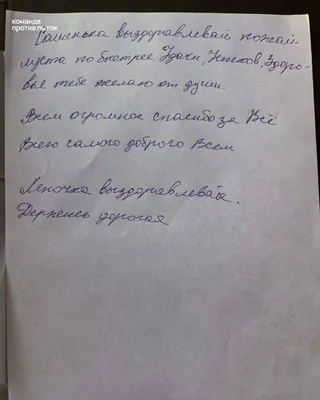 команда
против пыток
Сашенька выздоравлевай пожай-
луста по быстрее Удачи, Успехов, Здоро-
вье тебе желаю от души.
Всем огромное спасибо за Всё
Всего самого доброго Всем
Леночка выздоравлевай.
Держись дорогая